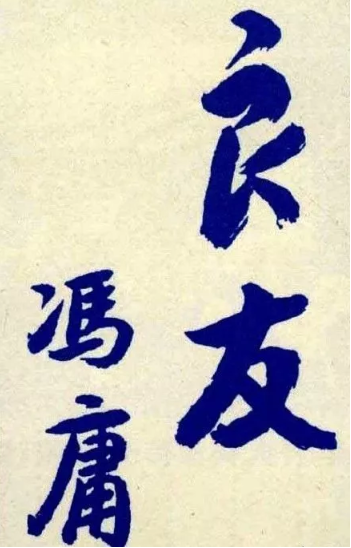 良友
馮庸